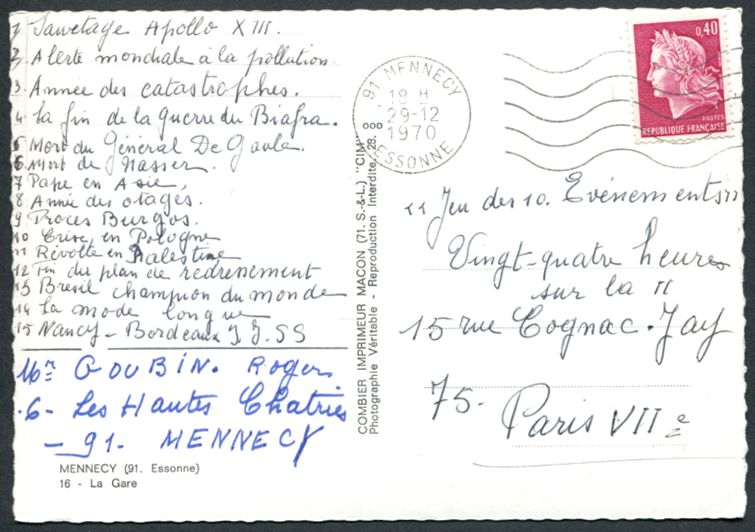 1 Sauvetage Apollo XIII.
2, Alerte mondiale à la pollution.
3. Année des catastrophes.
4 La fin de la guerre du Biafra.
5 Mort du Général De Gaule.
6. Mort de Nasser.
7 Pape en Asie,
8 Année des otages.
9 Procès Burgos.
10 Crise en Pologne
11 Révolte en Palestine
12 Fin du plan de redressement
13 Bresil champion du monde
14 La mode longue
15 Nancy - Bordeaux JJ.SS
Mr GOUBIN. Roger
6 - Les Hautes Chatries
- 91. MENNECY
MENNECY (91. Essonne)
16 - La Gare
COMBIER IMPRIMEUR MACON (71. S.-&-L.) "CIM"
Photographie Véritable - Reproduction Interdite. 28.
91 MENNECY
18 H
29-12
1970
ESSONNE
0,40
POSTES
REPUBLIQUE FRANÇAISE
"Jeu des 10. Evénements"
Vingt-quatre heures
sur la II
15 rue Cognac-Jay
75 - Paris VIIe